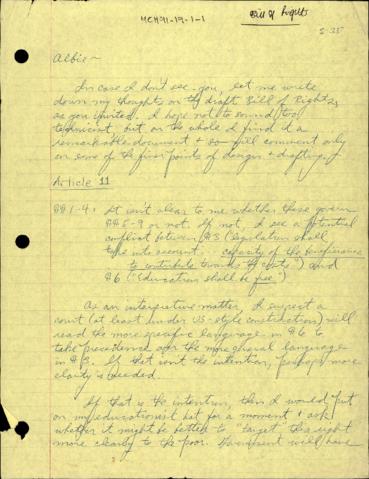 MCH91-19-1-1
Bill of Rights
2-35
Albie -
In case I don't see you, let me write
down my thoughts on the draft Bill of Rights,
as you invited. I hope not to sound too
technicist, but on the whole I find it a
remarkable document + so will comment only
on some of the finer points of danger + drafting.
Article 11
§§1-4: It isn't clear to me whether these govern
§§5-9 or not. If not, I see a potential
conflict between §3 ("legislation shall
take into account ... capacity of the beneficiaries
to contribute towards the costs") and
§6 ("Education shall be free")
As an interpretive matter I suspect a
court (at least under US-style construction) will
read the more specific language in §6 to
take precedence over the more general language
in §3. If that isn't the intention, perhaps more
clarity is needed.
If that is the intention, then I would put
on my educationist hat for a moment + ask
whether it might be better to "target" the right
more clearly to the poor. Government will have